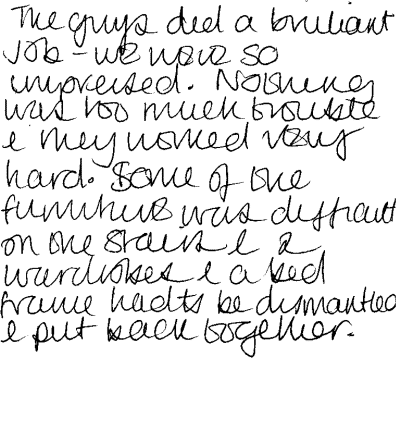 The guys did a brilliant
job - we were so
impressed. Nothing
was too much trouble
& they worked very
hard. Some of the
furniture was difficult
on the stairs & 2
wardrobes & a bed
frame had to be dismantled
& put back together.